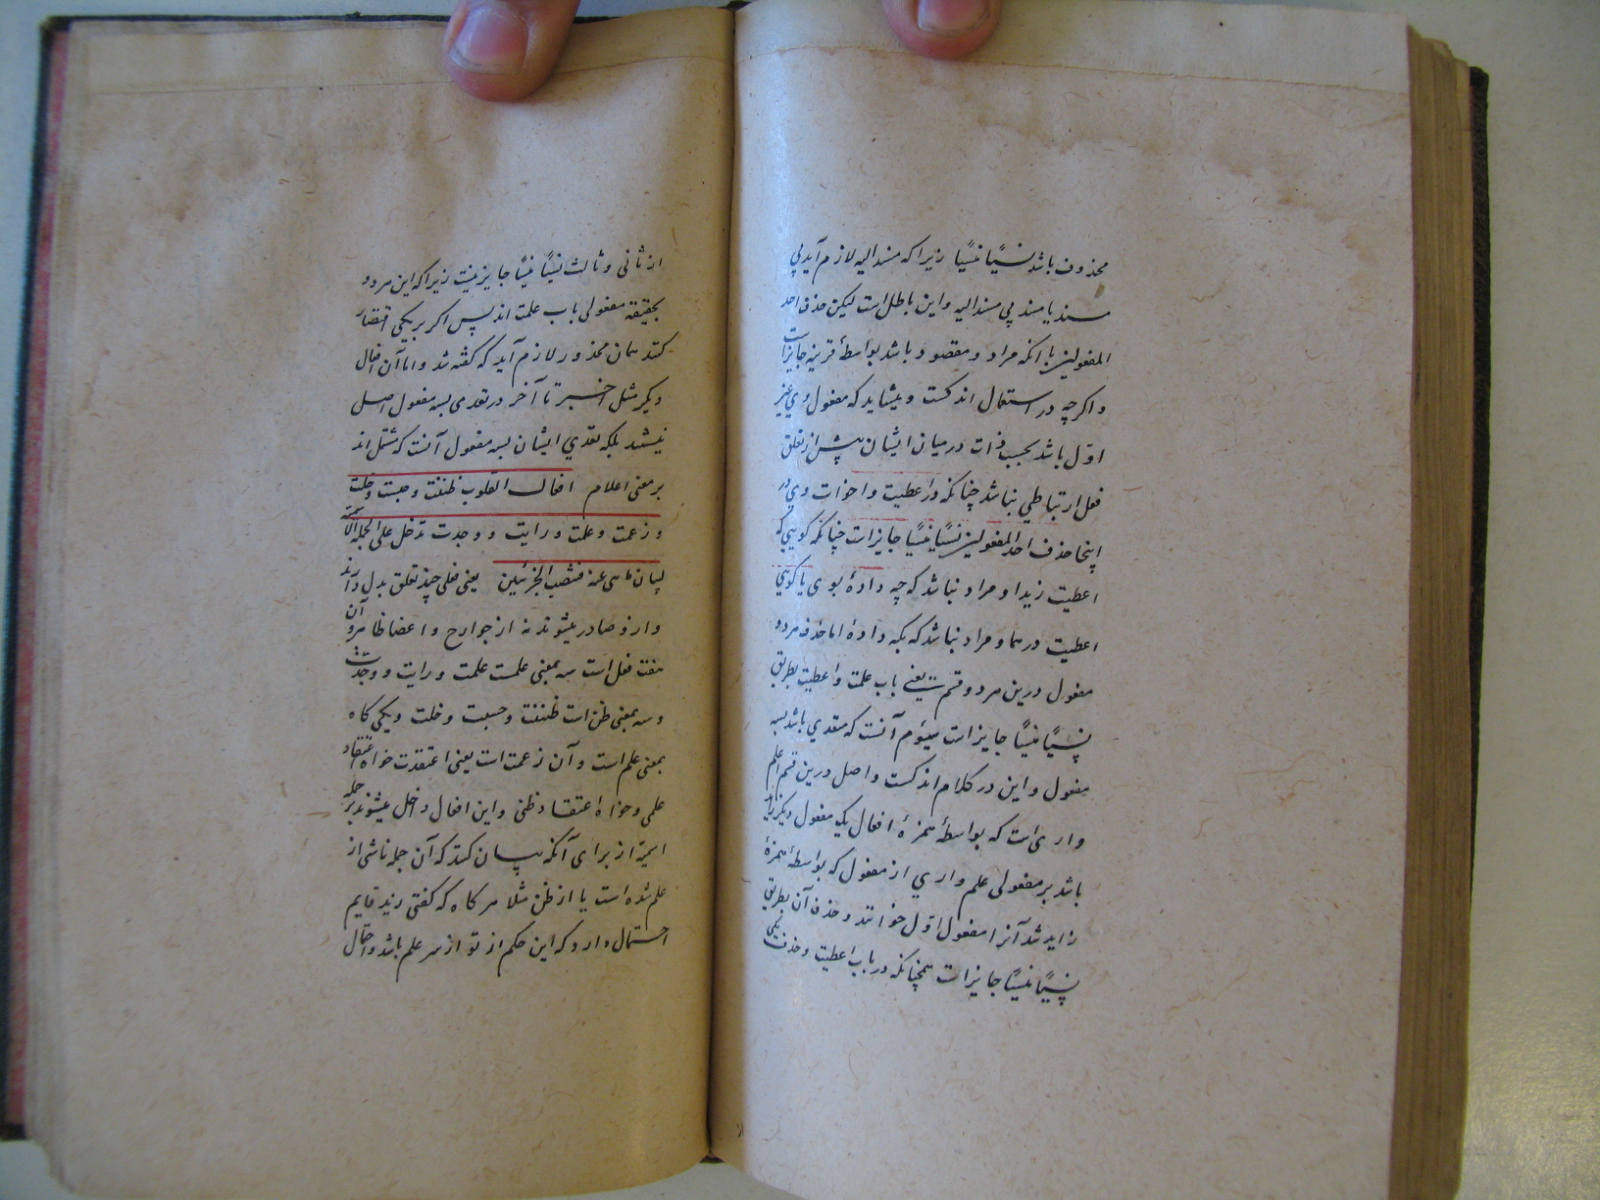 محذوف باشد نسیًا منسیًا زیرا که مسند الیه لازم آید بی
مسند یا مسند بی مسند الیه و این باطل است لیکن حذف احد
المفعولین با آنکه مراد و مقصود باشد بواسطهٔ قرینه جایز است
و اگرچه در استعمال اندکست و میشاید که مفعول وی غیر
اوّل باشد بحسب ذات در میان ایشان پیش از تعلق
فعل ارتباطی نباشد چنانکه در اعطیت و اخوات وی در
اینجا حذف احد المفعولین نسیًا منسیًا جایز است چنانکه گویی که
اعطیت زیدا و مراد نباشد که چه دادهٔ بوی یا گویی
اعطیت درهما و مراد نباشد که بکه دادهٔ اما حذف هر دو
مفعول درین هر دو قسم یعنی باب علمت و اعطیت بطریق
نسیًا منسیًا جایز است سیوم آنست که متعدی باشد بسه
مفعول و این در کلام اندکست و اصل درین قسم اعلم
و اری است که بواسطهٔ همزهٔ افعال یک مفعول دیگر زیاد
باشد بر مفعولی علم و اری از مفعول که بواسطهٔ همزهٔ
زاید شد آنرا مفعول اوّل خوانند و حذف آن بطریق
نسیًا منسیًا جایز است همچنانکه در باب اعطیت و حذف یکی
از ثانی و ثالث نسیًا منسیًا جایز نیست زیرا که این هر دو
بحقیقه مفعولی باب علمت اند پس اکر بر یکی اقتصار
کنند همان محذور لازم آید که گفته شد و اما آن افعال
دیگر مثل اخبر تا آخر در تعدی بسه مفعول اصل
نیستند بلکه تعدی ایشان بسه مفعول آنست که مشتمل اند
بر معنی اعلام افعال القلوب ظننت و حسبت و خلت
و زعمت و علمت و رایت و وجدت تدخل علی الجملة الاسمیة
لبیان ما هی عنه فتنصب الجزئین یعنی فعلی چند تعلق بدل دارند
و از و صادر میشوند نه از جوارح و اعضا ظاهر و آن
هفت فعل است سه بمعنی علمست علمت و رایت و وجدت
و سه بمعنی ظن است ظننت و حسبت و خلت و یکی کاه
بمعنی علم است و آن زعمت است یعنی اعتقدت خواه اعتقاد
علمی و خواه اعتقاد ظنی و این افعال داخل میشوند بر جمله
اسمیه از برای آنکه بیان کند که آن جمله ناشی از
علم شده است یا از ظن مثلا هر کاه که گفتی زید قایم
احتمال دارد که این حکم از تو از سر علم باشد و احتمال